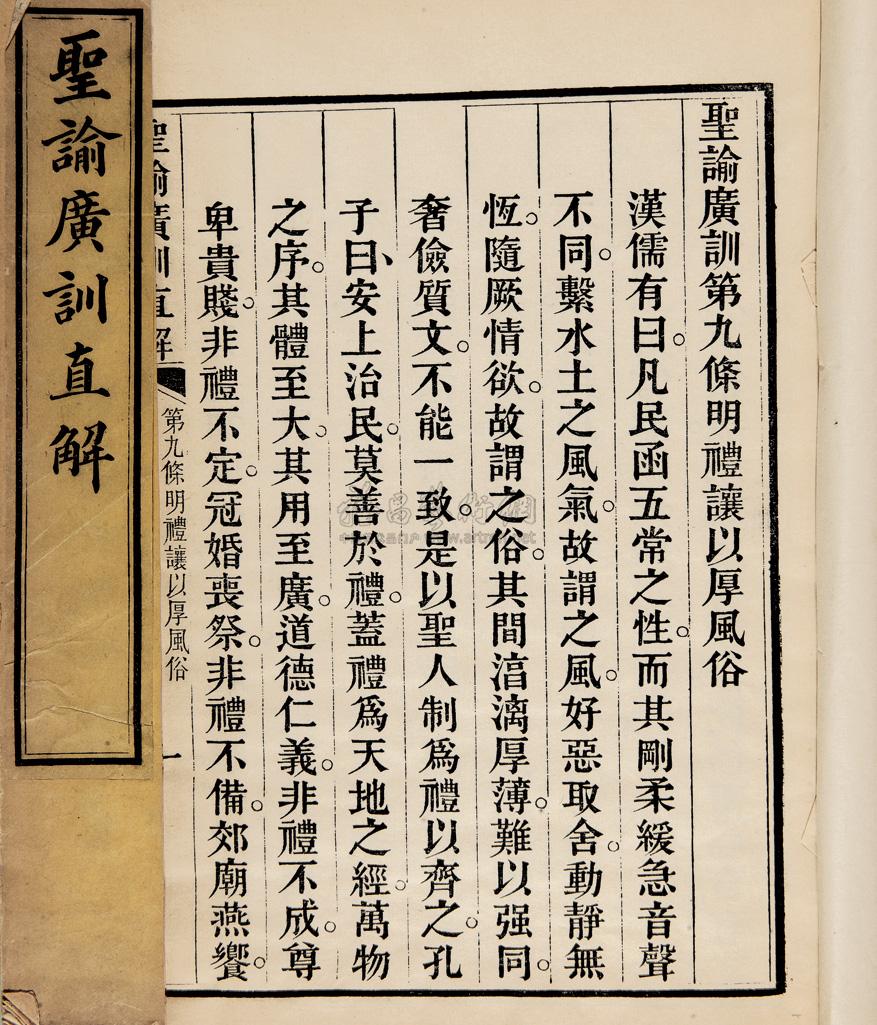 聖諭廣訓第九條明禮讓以厚風俗
漢儒有曰。凡民函五常之性。而其剛柔緩急音聲
不同。繫水土之風氣。故謂之風。好惡取舍。動靜無
恆。隨厥情欲。故謂之俗。其間湻漓厚薄。難以强同。
奢儉質文。不能一致。是以聖人制爲禮以齊之。孔
子曰、安上治民。莫善於禮。蓋禮爲天地之經。萬物
之序。其體至大。其用至廣。道德仁義。非禮不成。尊
卑貴賤。非禮不定。冠婚喪祭。非禮不備。郊廟燕饗。
聖諭廣訓直解 第九條明禮讓以厚風俗 一
聖諭廣訓直解